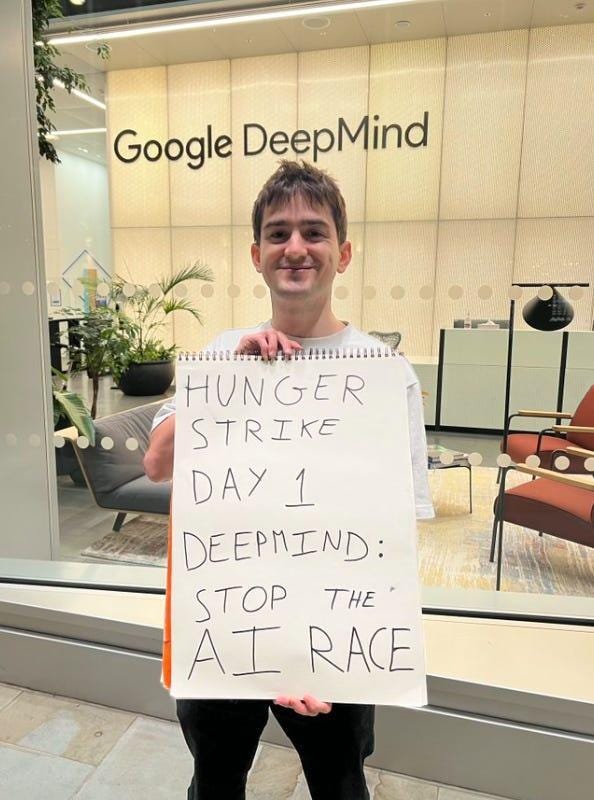 Google DeepMind
HUNGER
STRIKE
DAY 1
DEEPMIND:
STOP THE
AI RACE